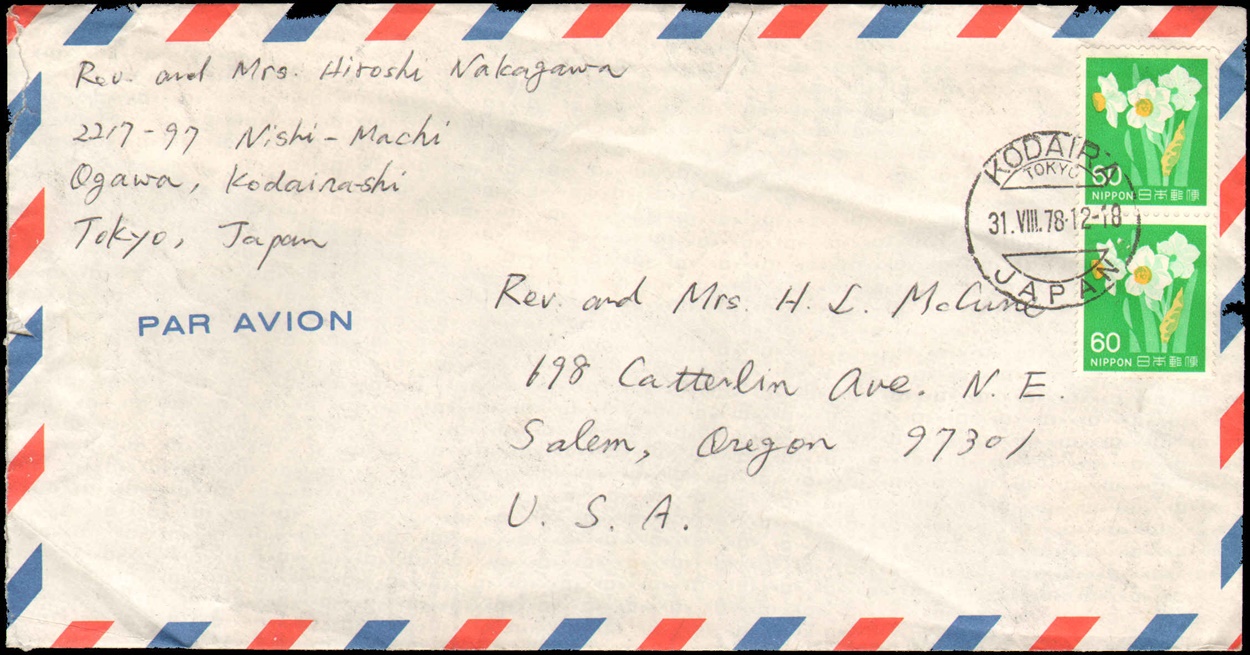 Rev. and Mrs. Hiroshi Nakagawa
2217-97 Nishi-Machi
Ogawa, Kodaira-shi
Tokyo, Japan
PAR AVION
KODAIRA
TOKYO
31.VIII.78.12-18
JAPAN
60
NIPPON 日本郵便
60
NIPPON 日本郵便
Rev. and Mrs. H. L. McCune
698 Catterlin Ave. N. E.
Salem, Oregon 97301
U. S. A.